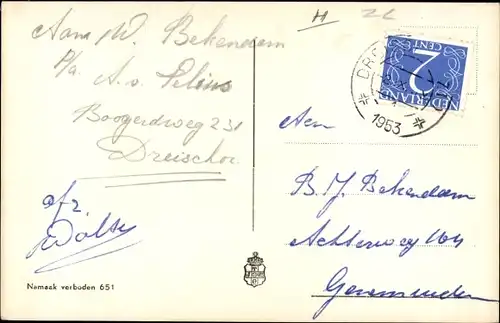 H ZL
Aan W. Bekendam
P/a A. v. Selins
Boogerdweg 231
Dreischor
afz
Namaak verboden 651
NEDERLAND
2
CENT
1953
Aan
B. J. Bekendam
Achterweg 164
Genemuiden